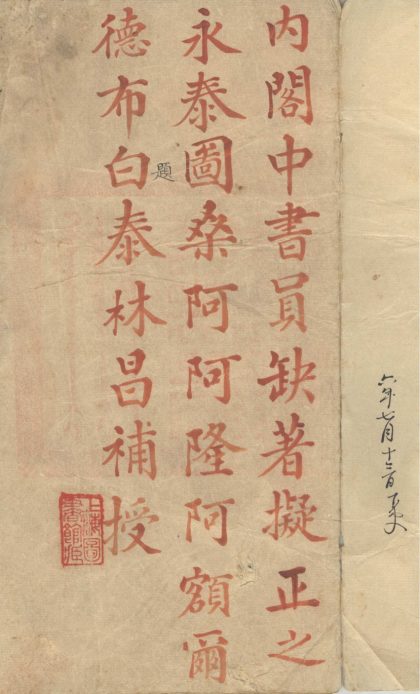 六年七月十
内閣中書員缺著擬正之
永泰圖桑阿阿隆阿額爾
題
德布白泰林昌補授
上海圖書館藏